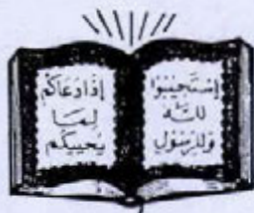 إستجيبوا
لله
وللرسول
إذا دعاكم
لما
يحييكم